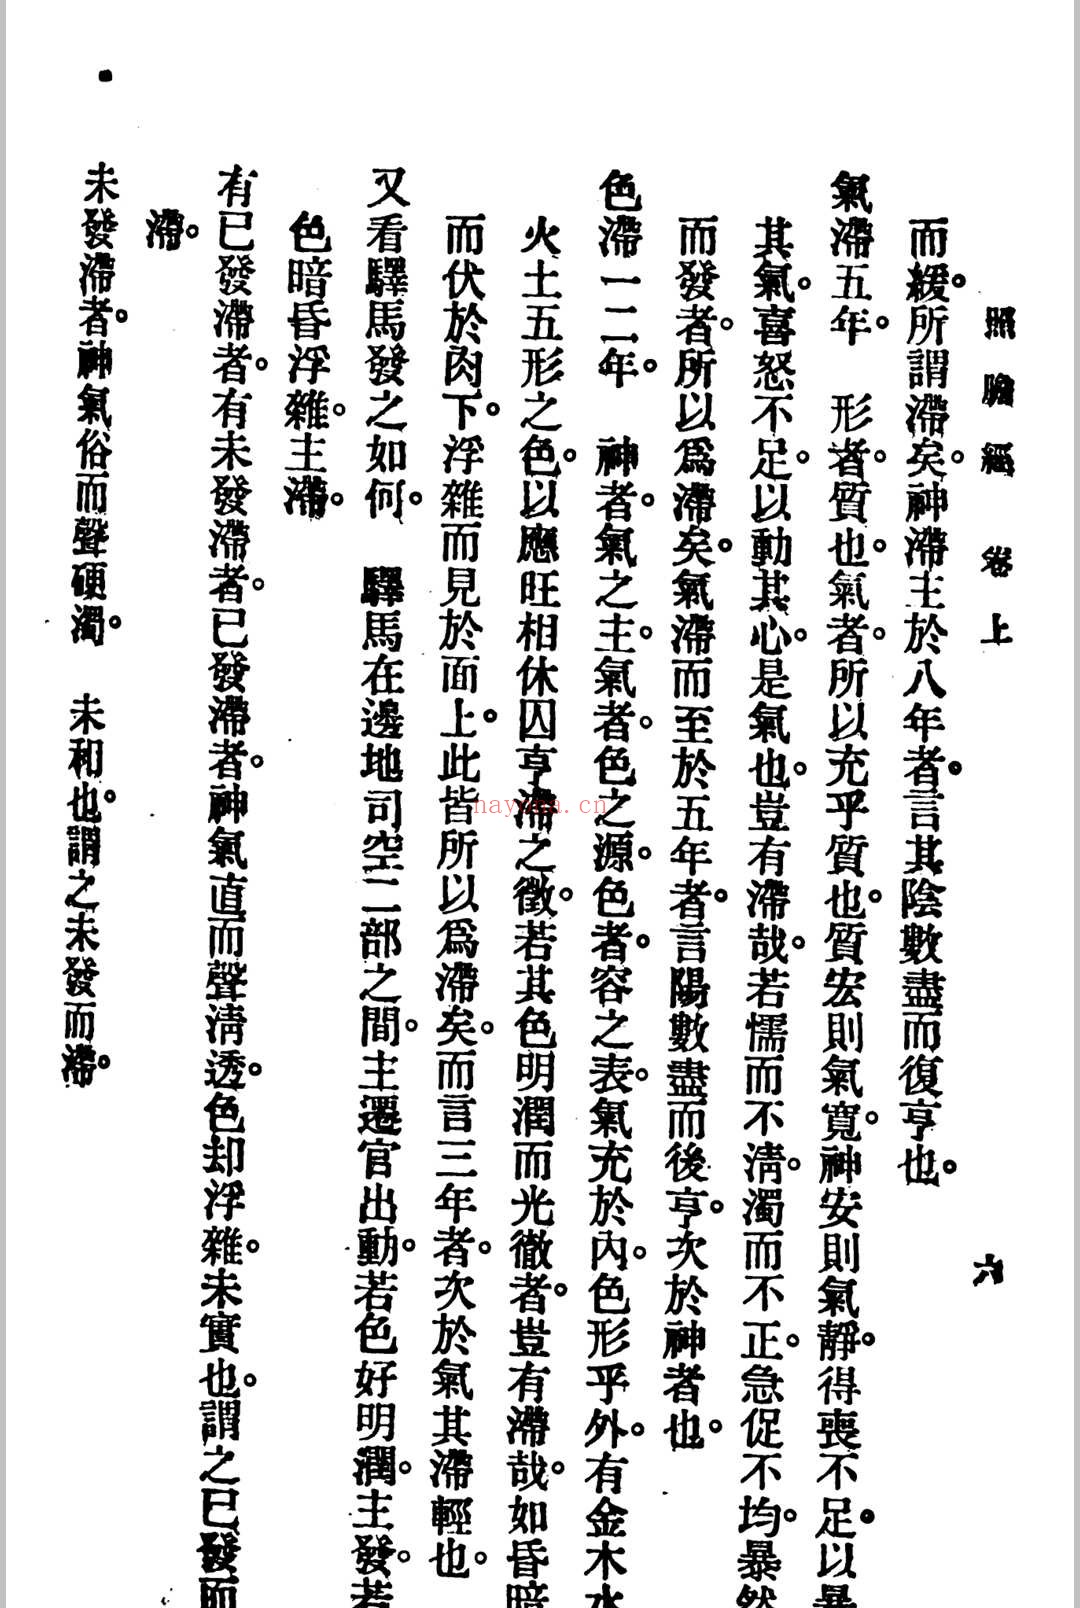 照膽經 卷上 六
而緩。所謂滯矣。神滯主於八年者。言其陰數盡而復亨也。
氣滯五年。 形者。質也。氣者。所以充乎質也。質宏則氣寬。神安則氣靜。得喪不足。以暴
其氣。喜怒不足。以動其心。是氣也。豈有滯哉。若懦而不淸。濁而不正。急促不均。暴然
而發者。所以爲滯矣。氣滯而至於五年者。言陽數盡而後亨。次於神者也。
色滯一二年。 神者。氣之主。氣者。色之源。色者。容之表。氣充於內。色形乎外。有金木水
火土五形之色。以應旺相休囚亨滯之徵。若其色明潤而光徹者。豈有滯哉。如昏暗
而伏於肉下。浮雜而見於面上。此皆所以爲滯矣。而言三年者。次於氣其滯輕也。
又看驛馬發之如何。 驛馬在邊地司空二部之間。主遷官出動。若色好明潤。主發。若
色暗昏浮雜。主滯。
有已發滯者。有未發滯者。已發滯者。神氣直而聲淸透。色却浮雜。未實也。謂之已發而
滯。
未發滯者。神氣俗而聲硬濁。 未和也。謂之未發而滯。
nayona.cn